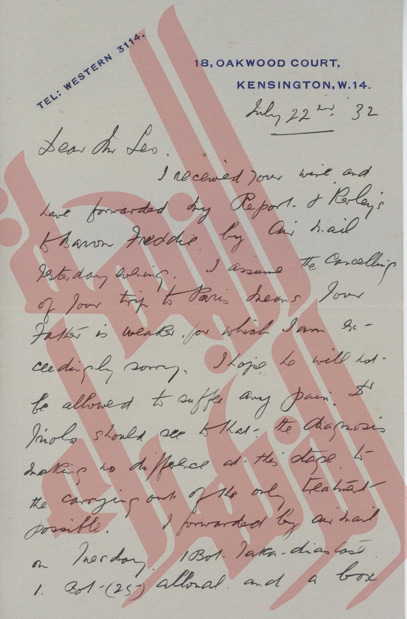 TEL: WESTERN 3114.
18, OAKWOOD COURT,
KENSINGTON, W.14.
July 22nd '32
Dear Mr Leo.
I received your wire and
have forwarded my Report & Perley's
to Baron Freddie by Air Mail
yesterday evening. I assume the cancelling
of your trip to Paris means your
Father is weaker for which I am ex-
ceedingly sorry. I hope he will not
be allowed to suffer any pain. Dr
should see to that - the diagnosis
making no difference at this stage to
the carrying out of the only treatment
possible. I forwarded by air mail
on Tuesday. 1 Bot. Taka-diastase
1. Bot-(25) allonal and a box